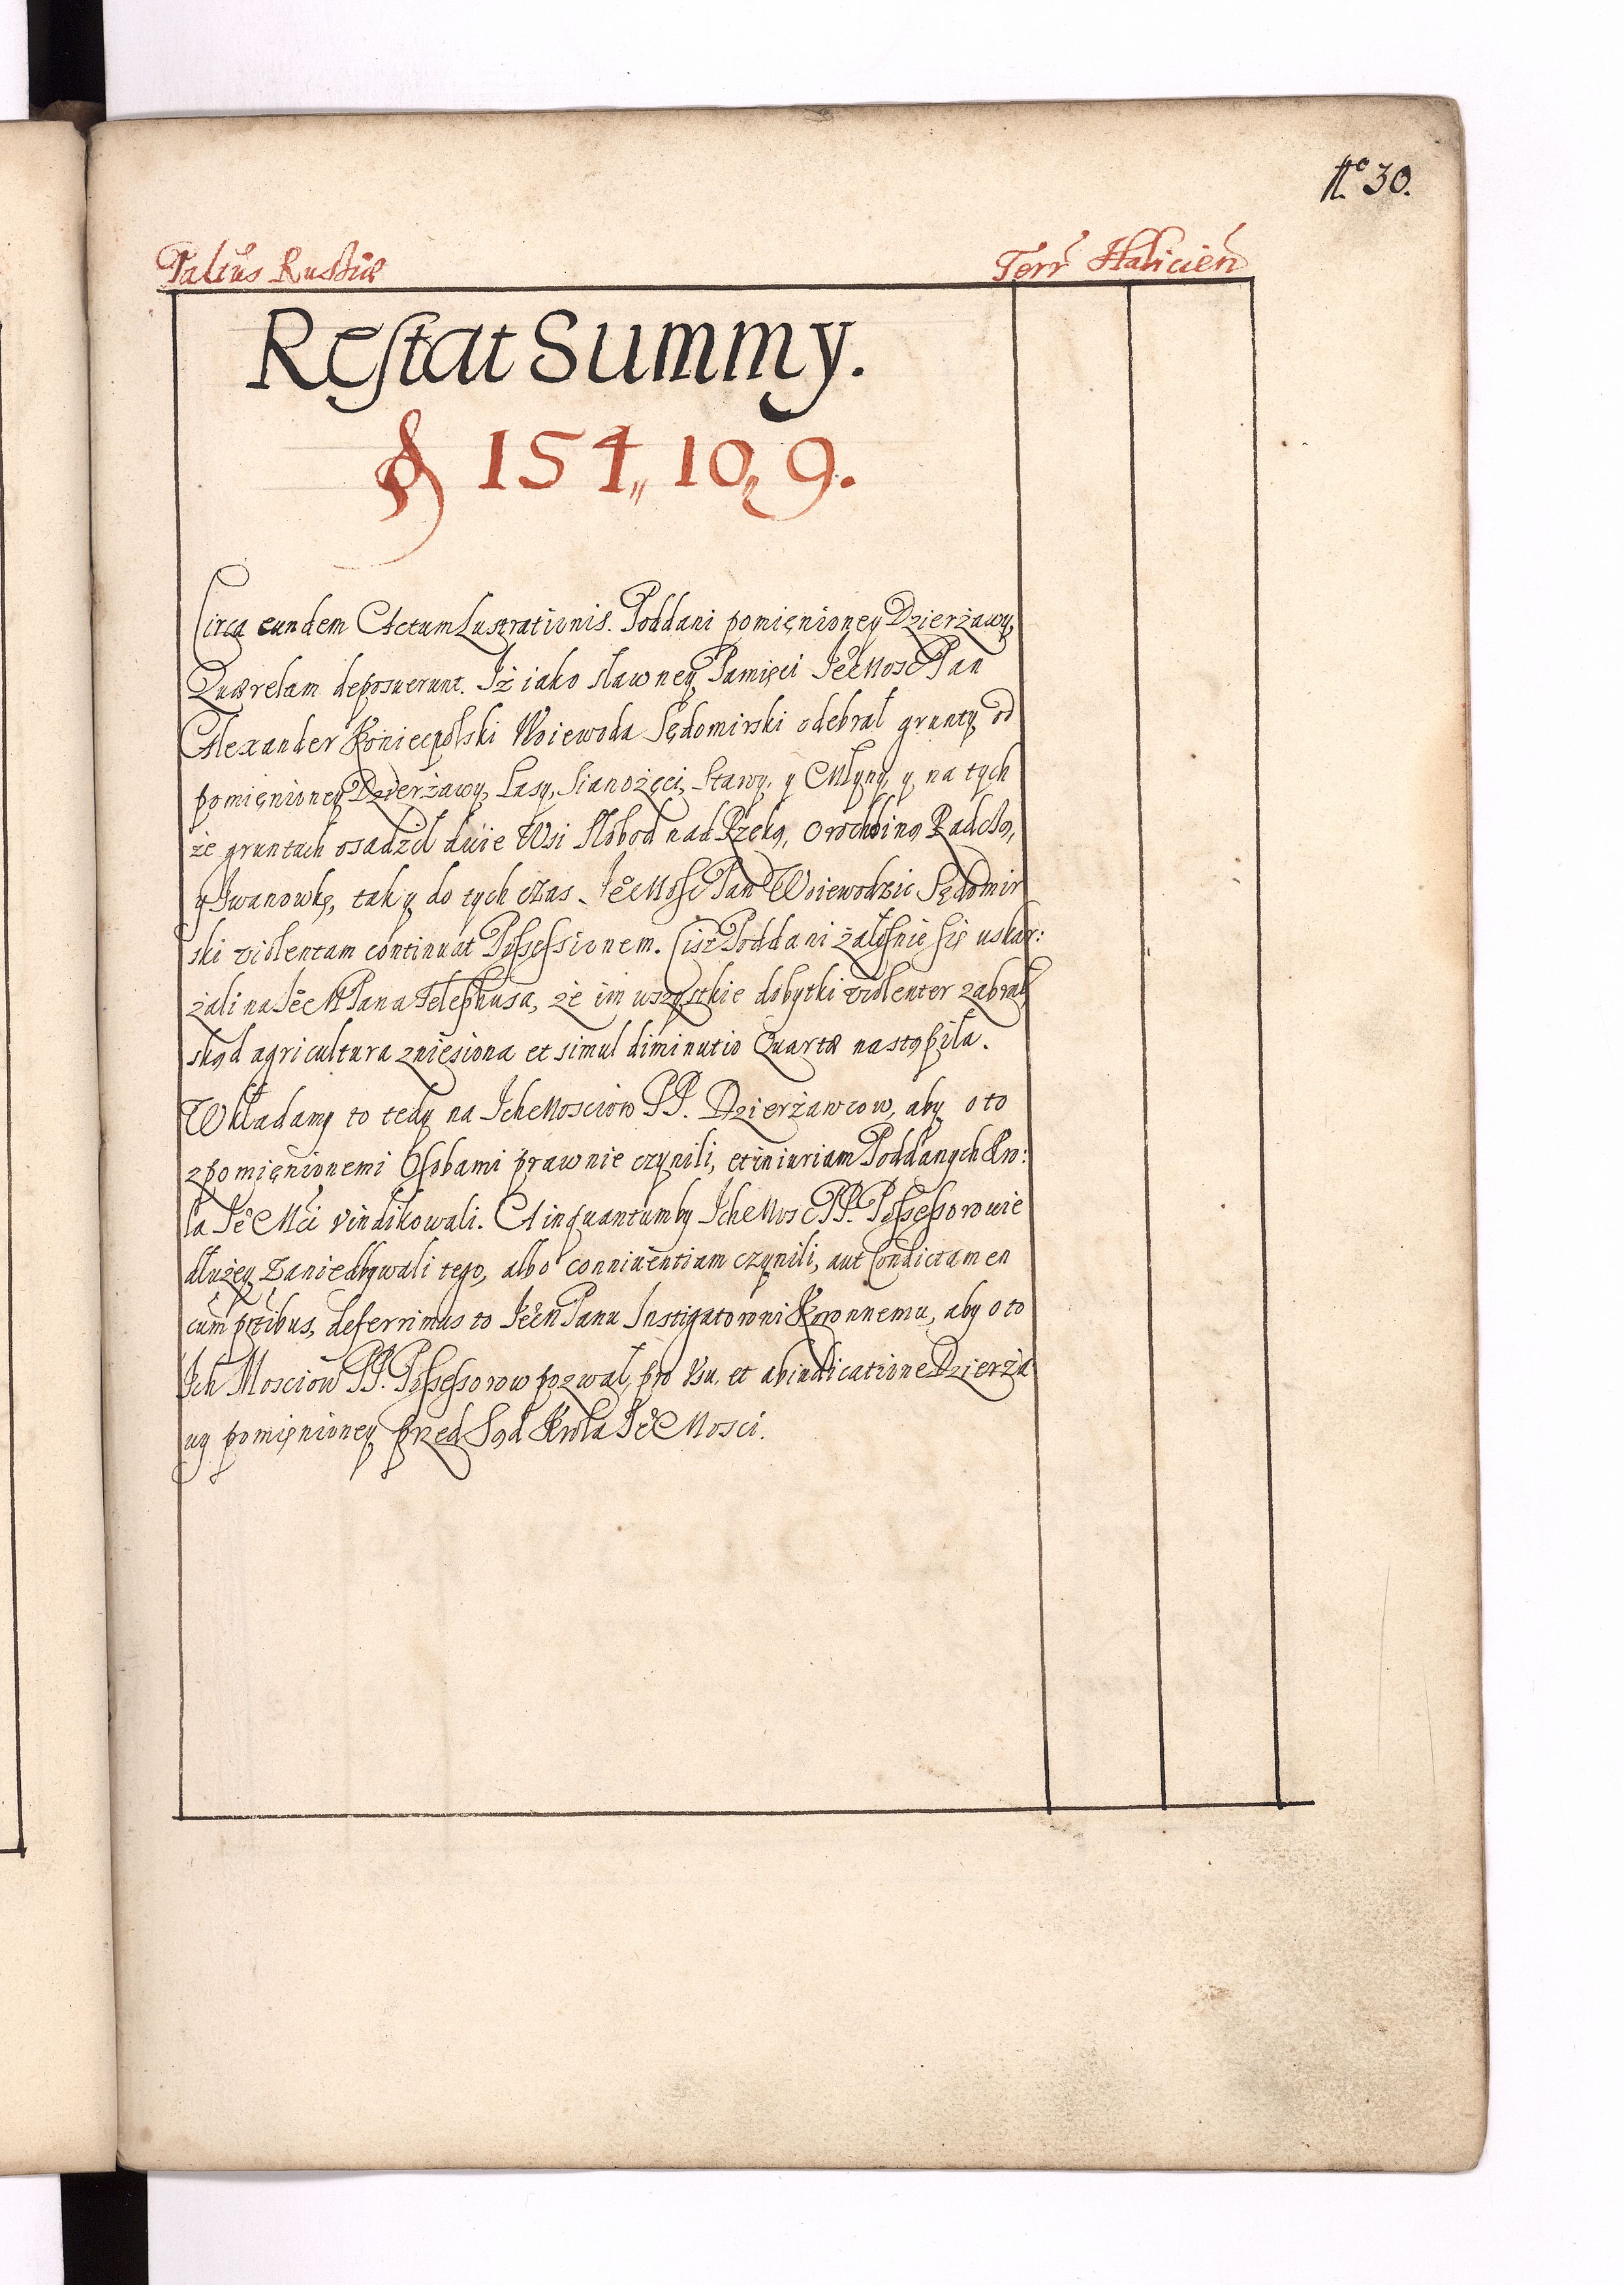 No 30.
Paltus Russiæ Terr Halicien
Restat Summy.
154,, 10,, 9.
Circa eundem Actum Lustrationis. Poddani pomięnioney Dzierżawy,
Quærelam deposuerunt. Iż iako sławney Pamięci Je° Mosc Pan
Alexander Koniecpolski Woiewoda Sędomirski odebrał grunty od
pomięnioney Dzierżawy, Lasy, Sianożęci, Stawy, y Młyny, y na tych
że gruntach osadził dwie Wsi Słobod nad Rzeką,
y Iwanowkę, tak y do tych czas. Je° Mość Pan Woiewodzic Sędomir
ski violentam continuat Possessionem. Cisz Poddani żałośnie się uskar:
żali na Je° M Pana Telephusa, że im wszystkie dobytki violenter zabrał,
skąd agricultura zniesiona et simul diminutio Quartæ nastąpiła.
Wkładamy to tedy na Ich Mosciow PP. Dzierżawcow, aby o to
z pomięnionemi Osobami prawnie czynili, et iniuriam Poddanych Kro:
la Je° Mci vindikowali. A inquantumby Ich Mosc PP. Possessorowie
dłużey zaniedbywali tego, albo conniventiam czynili, aut Condictamen
cum ptibus, deferrimus to Je° M Panu Instigatorowi Koronnemu, aby o to
Ich Mosciow PP. Possessorow pozwał, pro Usu, et abiudicatione Dzierża
wy pomięnioney przed Sąd Krola Je° Mosci.